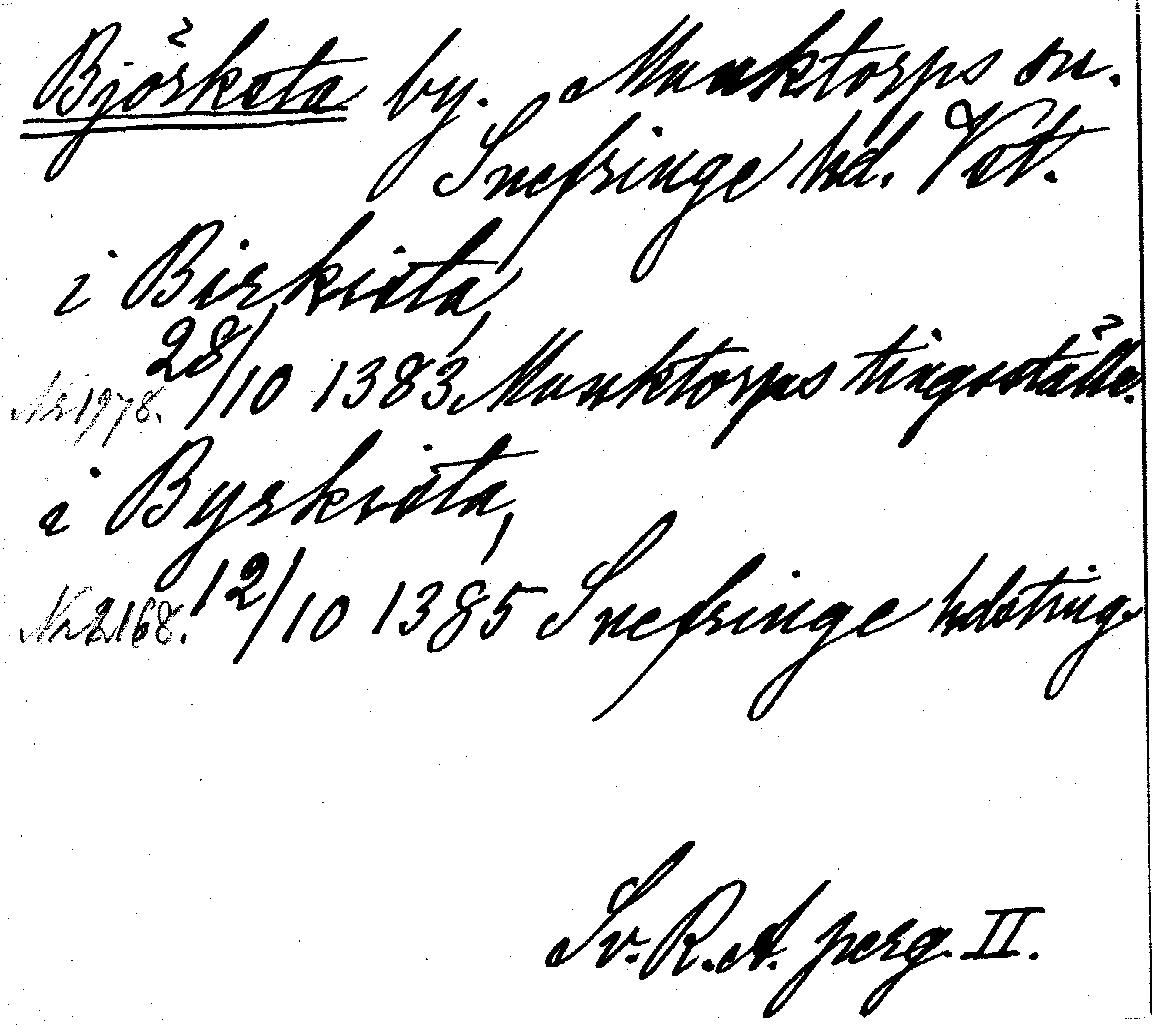 Björksta by. Munktorps sn.
Snefringe hd. Vst.
i Birkista,
Nr 1978. 28/10 1383, Munktorps tingsställe.
i Byrkista,
Nr 2168. 12/10 1385 Snefringe hdsting.
Sv. R. A. perg. II.